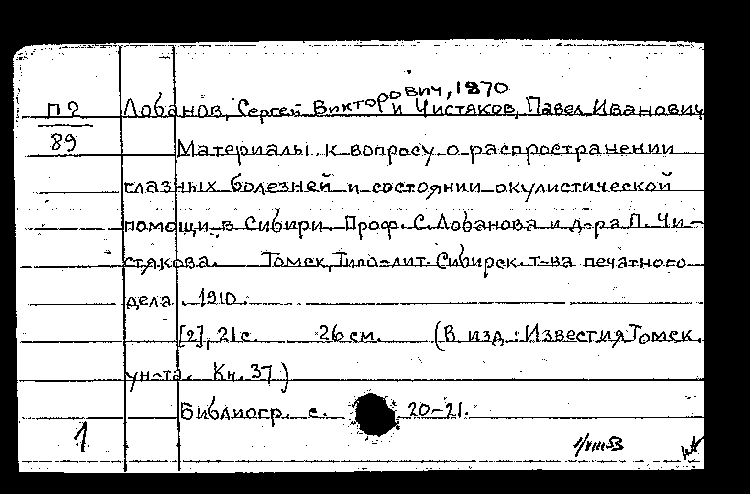 П2
89
Лобанов, Сергей Викторович, 1870 и Чистяков, Павел Иванович
Материалы к вопросу о распространении
глазных болезней и состоянии окулистической
помощи в Сибири. Проф. С. Лобанова и д-ра П. Чи-
стякова. Томск, Типо-лит. Сибирск. т-ва печатного
дела. 1910.
[2], 21 с. 26 см. (В изд.: Известия Томск.
ун-та. Кн. 37)
Библиогр. с. 20-21.
1
1/VIII 53